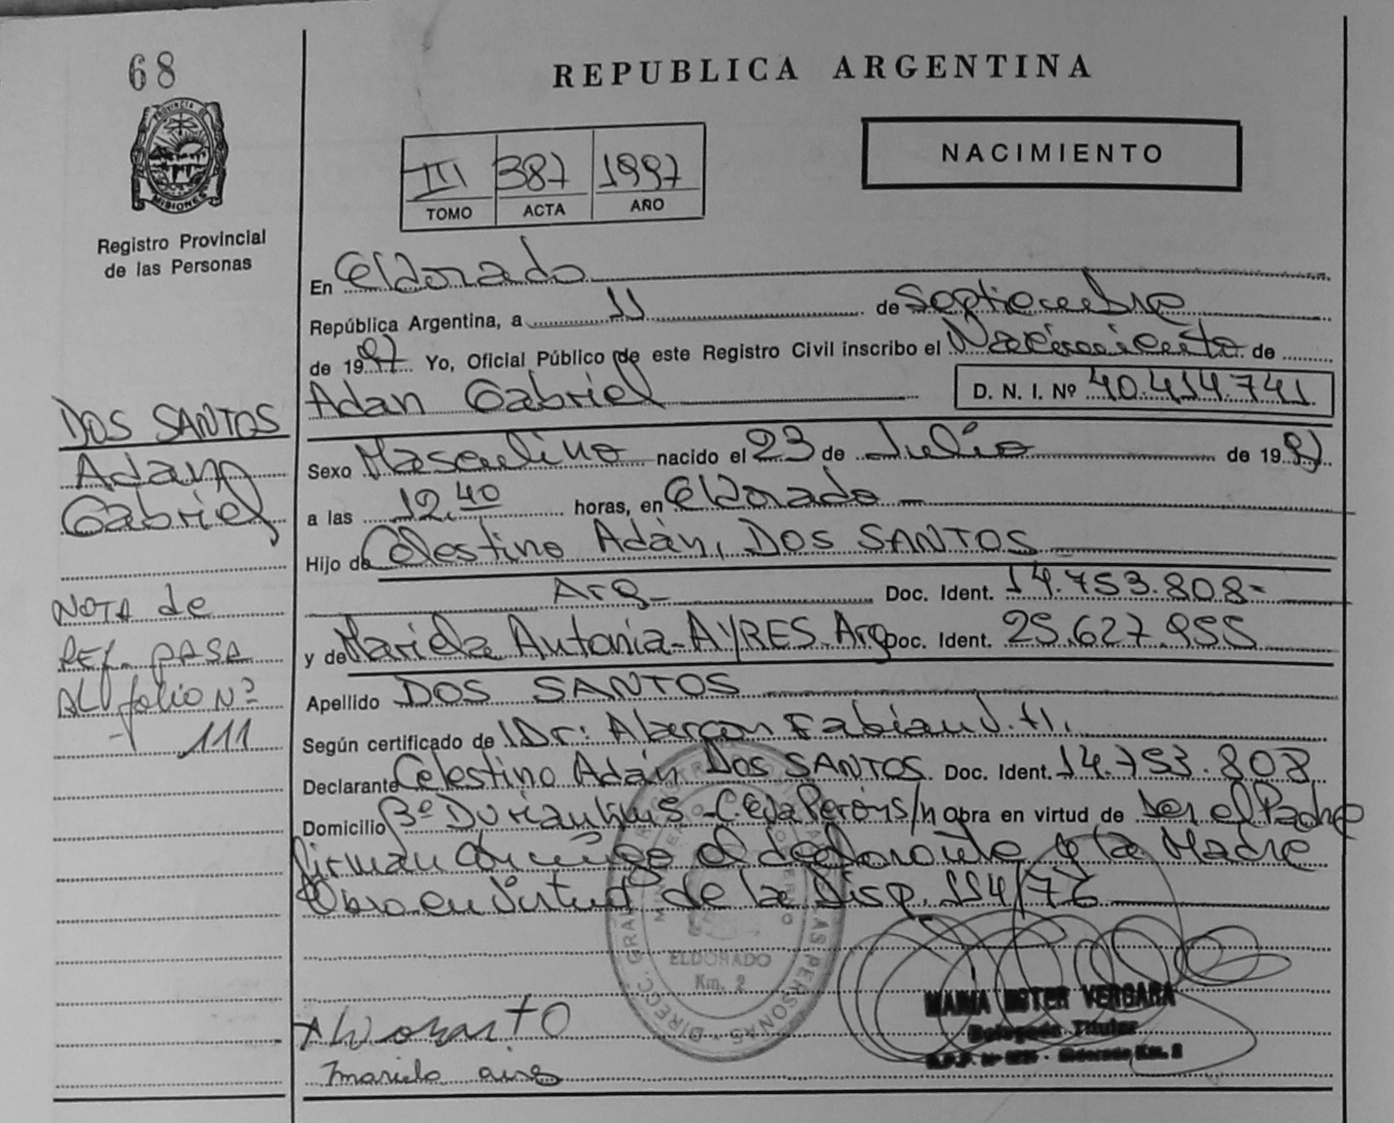 68
PROVINCIA DE
MISIONES
Registro Provincial
de las Personas
REPUBLICA ARGENTINA
NACIMIENTO
III 387 1997
TOMO ACTA AÑO
En Eldorado
República Argentina, a 11 de Septiembre
de 1997 Yo, Oficial Público de este Registro Civil inscribo el Nacimiento de
Adan Gabriel D. N. I. Nº 40.414.741
Sexo Masculino nacido el 23 de Julio de 1997
a las 12,40 horas, en Eldorado
Hijo de Celestino Adán, DOS SANTOS
Arg- Doc. Ident. 14.753.808-
y de Mariela Antonia-AYRES Arg Doc. Ident. 25.627.955
Apellido DOS SANTOS
Según certificado de Dr: Alarcon Fabian J. H.
Declarante Celestino Adán Dos SANTOS. Doc. Ident. 14.753.808
Domicilio Bº s/n Obra en virtud de ser el Padre
firman conmigo el declarante y la Madre
Obro en virtud de la Disp. 114/76
DOS SANTOS
Adan
Gabriel
NOTA de
REF. PASA
AL folio Nº
111
ELDORADO
Km. 2
MARIA ESTER VERGARA
Delegada Titular
R.P.P. Nº Eldorado Km. 2
mariela aires